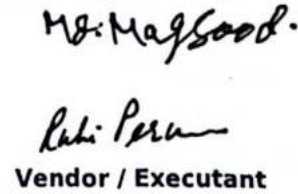 Md. Maqsood.
Rubi Perun
Vendor / Executant